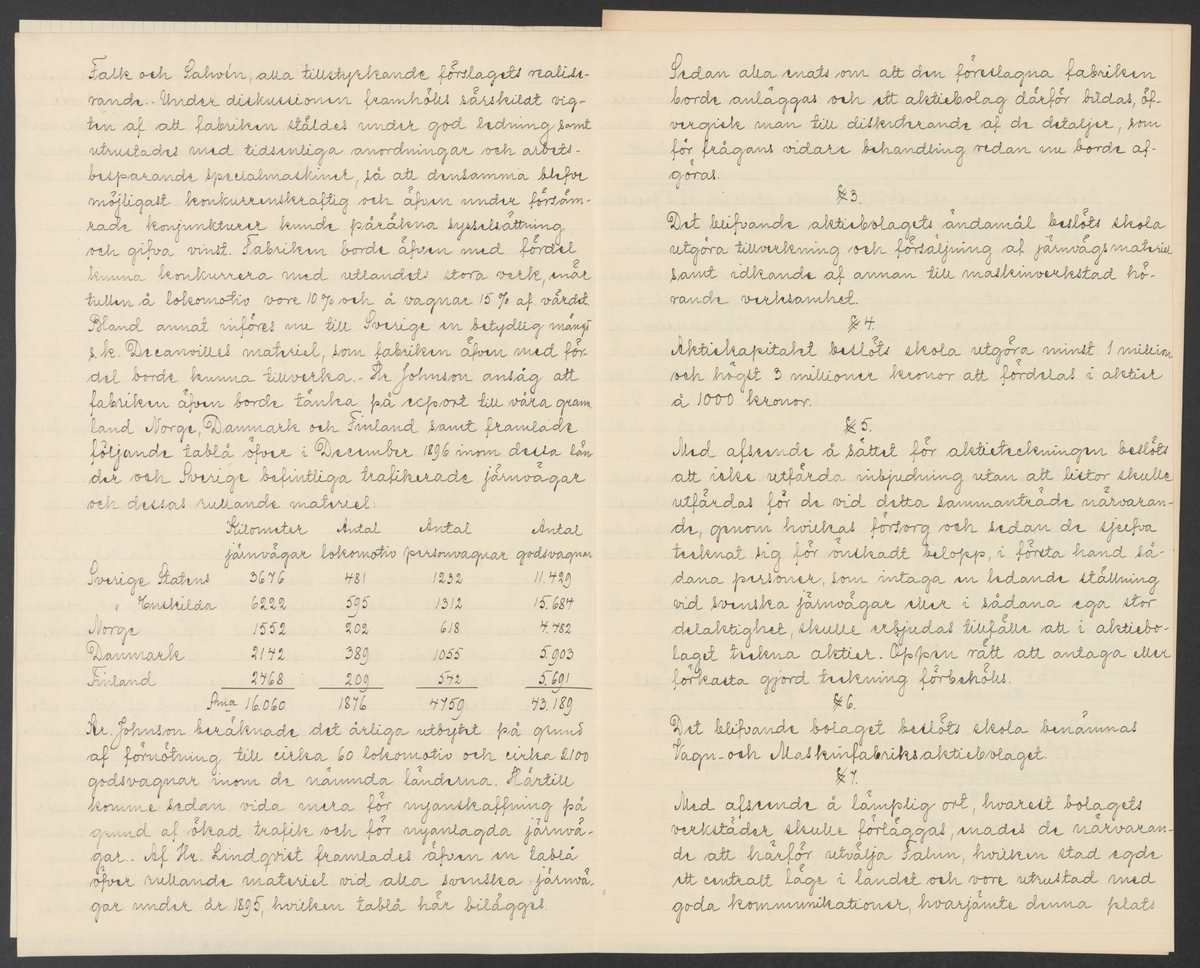 Falk och Sahvén, alla tillstyrkande förslagets realise-
rande.- Under diskussionen framhölls särskildt vig-
ten af att fabriken ställdes under god ledning samt
utrustades med tidsenliga anordningar och arbets-
besparande specialmaskiner, så att densamma blefve
möjligast konkurrenskraftig och äfven under försäm-
rade konjunkturer kunde påräkna sysselsättning
och gifva vinst. Fabriken borde äfven med fördel
kunna konkurrera med utlandets stora verk, när
tullen å lokomotiv vore 10% och å vagnar 15% af värdet.
Bland annat införes nu till Sverige en betydlig mängd
s.k. Decauvilles materiel, som fabriken äfven med för-
del borde kunna tillverka.- Hr Johnson ansåg att
fabriken äfven borde tänka på export till våra grann-
land Norge, Danmark och Finland samt framlade
följande tablå öfver i December 1896 inom dessa län-
der och Sverige befintliga trafikerade järnvägar
och dessas rullande materiel:
Kilometer Antal Antal Antal
järnvägar lokomotiv personvagnar godsvagnar
Sverige Statens 3676 481 1232 11.429
" Enskilda 6222 595 1312 15.684
Norge 1552 202 618 4.782
Danmark 2142 389 1055 5.903
Finland 2468 209 542 5.691
Sma 16.060 1876 4759 43.189
Hr. Johnson beräknade det årliga utbytet på grund
af förnötning till cirka 60 lokomotiv och cirka 2100
godsvagnar inom de nämnda länderna. Härtill
komme sedan vida mera för nyanskaffning på
grund af ökad trafik och för nyanlagda järnvä-
gar.. Af Hr. Lindqvist framlades äfven en tablå
öfver rullande materiel vid alla svenska järnvä-
gar under år 1895, hvilken tablå här bilägges.
Sedan alla enats om att den föreslagna fabriken
borde anläggas och ett aktiebolag därför bildas, öf-
vergick man till diskuterande af de detaljer, som
för frågans vidare behandling redan nu borde af-
göras.
§ 3.
Det blifvande aktiebolagets ändamål beslöts skola
utgöra tillverkning och försäljning af järnvägsmateriel
samt idkande af annan till maskinverkstad hö-
rande verksamhet.
§ 4.
Aktiekapitalet beslöts skola utgöra minst 1 million
och högst 3 millioner kronor att fördelas i aktier
å 1000 kronor.
§ 5.
Med afseende å sättet för aktieteckningen beslöts
att icke utfärda inbjudning utan att listor skulle
utfärdas för de vid detta sammanträde närvaran-
de, genom hvilkas försorg och sedan de sjelfva
tecknat sig för önskadt belopp, i första hand så-
dana personer, som intaga en ledande ställning
vid svenska järnvägar eller i sådana ega stor
delaktighet, skulle erbjudas tillfälle att i aktiebo-
laget teckna aktier. Öppen rätt att antaga eller
förkasta gjord teckning förbehölls.
§ 6.
Det blifvande bolaget beslöts skola benämnas
Vagn- och Maskinfabriksaktiebolaget.
§ 7.
Med afseende å lämplig ort, hvarest bolagets
verkstäder skulle förläggas, enades de närvaran-
de att härför utvälja Falun, hvilken stad egde
ett centralt läge i landet och vore utrustad med
goda kommunikationer, hvarjämte denna plats